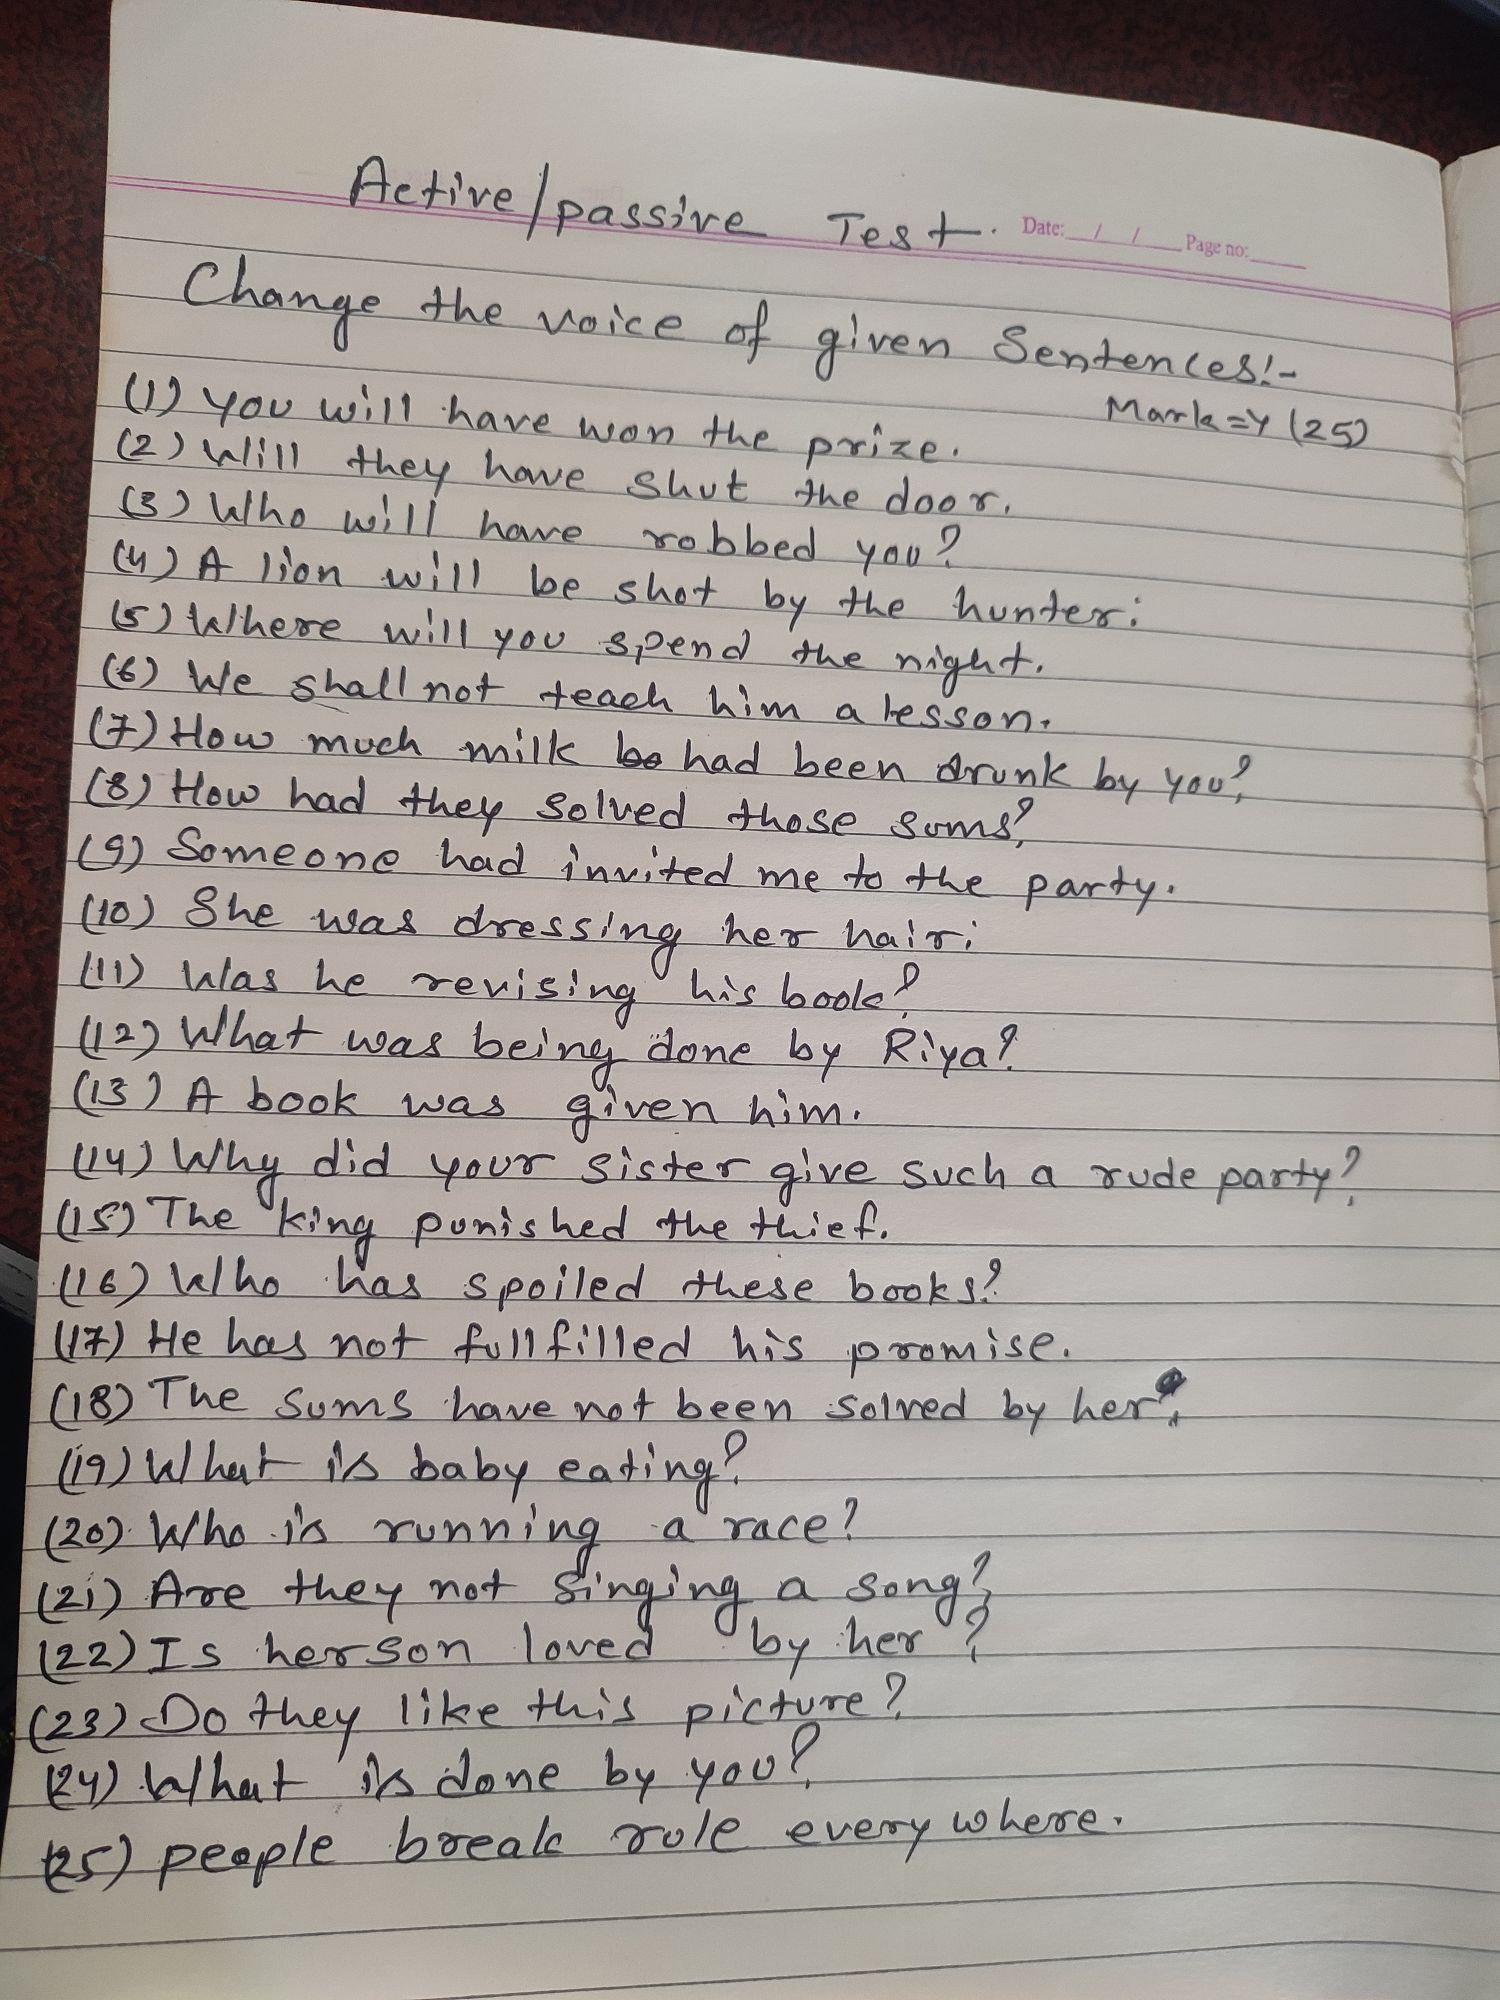 Active/passive Test.
Date: / / Page no:
Change the voice of given Sentences:-
Mark=Y (25)
(1) you will have won the prize.
(2) Will they have shut the door.
(3) Who will have robbed you?
(4) A lion will be shot by the hunter.
(5) Where will you spend the night.
(6) We shall not teach him a lesson.
(7) How much milk had been drunk by you?
(8) How had they solved those sums?
(9) Someone had invited me to the party.
(10) She was dressing her hair.
(11) Was he revising his book?
(12) What was being done by Riya?
(13) A book was given him.
(14) Why did your sister give such a rude party?
(15) The king punished the thief.
(16) Who has spoiled these books?
(17) He has not fullfilled his promise.
(18) The sums have not been solved by her.
(19) What is baby eating?
(20) Who is running a race?
(21) Are they not singing a song?
(22) Is her son loved by her?
(23) Do they like this picture?
(24) What is done by you?
(25) people break rule every where.